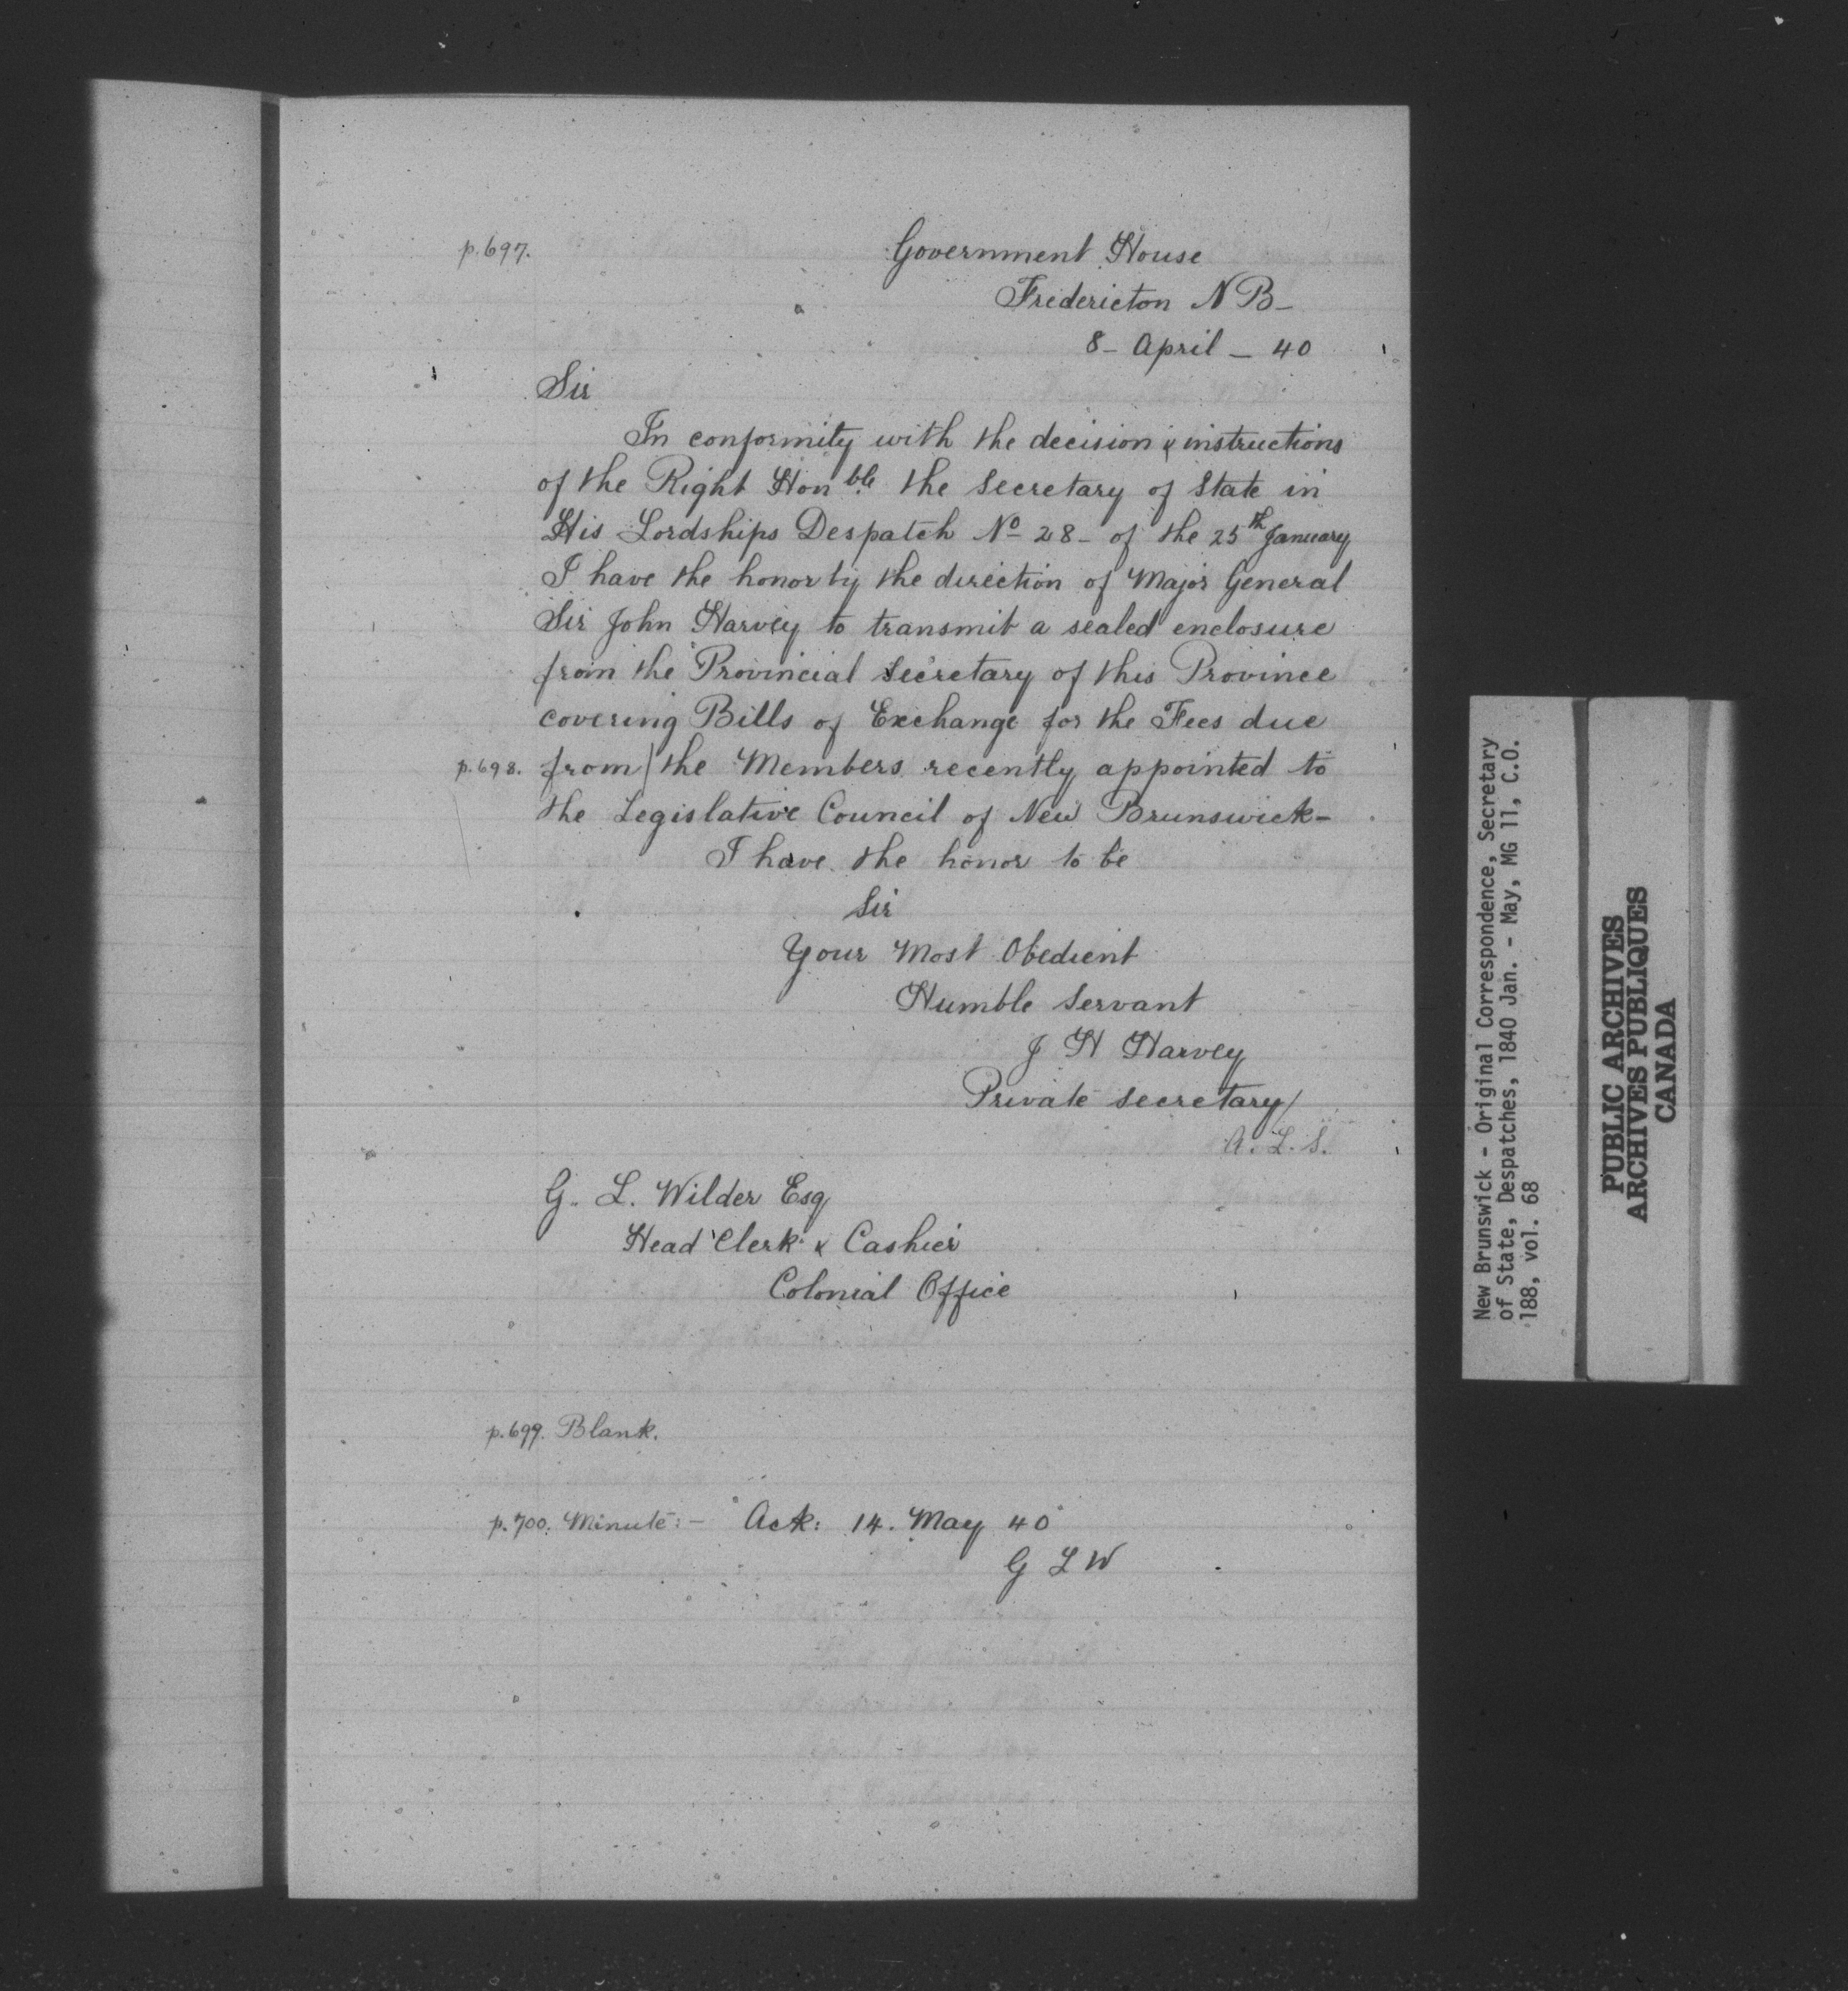 p.697.
Government House
Fredericton N B-
8- April - 40
Sir
In conformity with the decision & instructions
of the Right Honble the Secretary of State in
His Lordships Despatch No 28- of the 25th January
I have the honor by the direction of Major General
Sir John Harvey to transmit a sealed enclosure
from the Provincial Secretary of this Province
covering Bills of Exchange for the Fees due
p.698. from/the Members recently appointed to
the Legislative Council of New Brunswick-
I have the honor to be
Sir
Your Most Obedient
Humble Servant
J H Harvey
Private Secretary/
A. L. S.
G. L. Wilder Esq
Head Clerk & Cashier
Colonial Office
p.699. Blank.
p.700. Minute:- "Ack: 14. May 40"
G L W
New Brunswick - Original Correspondence, Secretary
of State, Despatches, 1840 Jan. - May, MG 11, C.O.
188, vol. 68
PUBLIC ARCHIVES
ARCHIVES PUBLIQUES
CANADA